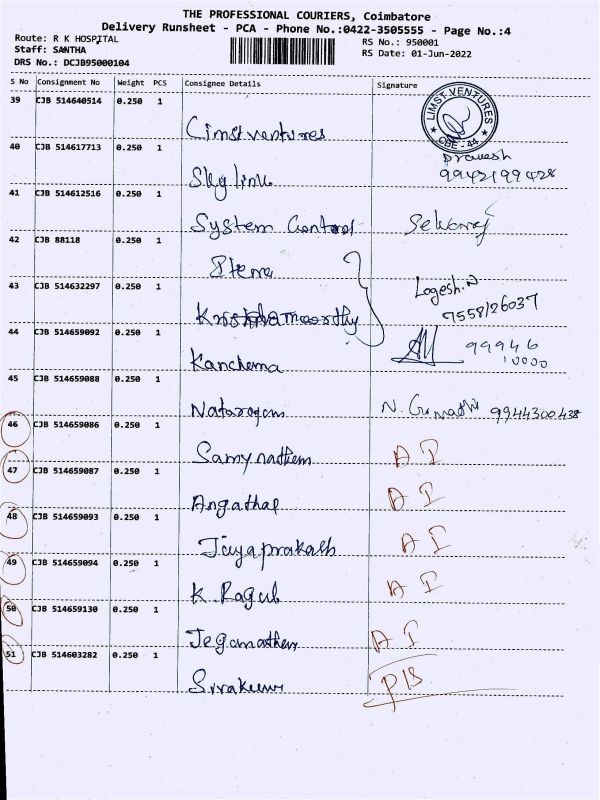 THE PROFESSIONAL COURIERS, Coimbatore
Delivery Runsheet - PCA - Phone No.:0422-3505555 - Page No.:4
Route: R K HOSPITAL
Staff: SANTHA
DRS No.: DCJB95000104
RS No.: 950001
RS Date: 01-Jun-2022
S No Consignment No Weight PCS Consignee Details Signature
39 CJB 514640514 0.250 1
Limst ventures
LIMST VENTURES
CBE - 44
40 CJB 514617713 0.250 1
Pravesh
9942199428
Sky link
41 CJB 514612516 0.250 1
System Control
42 CJB 88118 0.250 1
43 CJB 514632297 0.250 1
Logesh.N
7558126037
Krishnamoorthy
44 CJB 514659092 0.250 1
99946
10000
Kanchema
45 CJB 514659088 0.250 1
Natarajan N. Gomathi 9944300438
46 CJB 514659086 0.250 1
Samynathem A I
47 CJB 514659087 0.250 1
Angathal A I
48 CJB 514659093 0.250 1
Jayaprakash A I
49 CJB 514659094 0.250 1
K Ragul A I
50 CJB 514659130 0.250 1
Jeganathen A I
51 CJB 514603282 0.250 1
Sivakumr